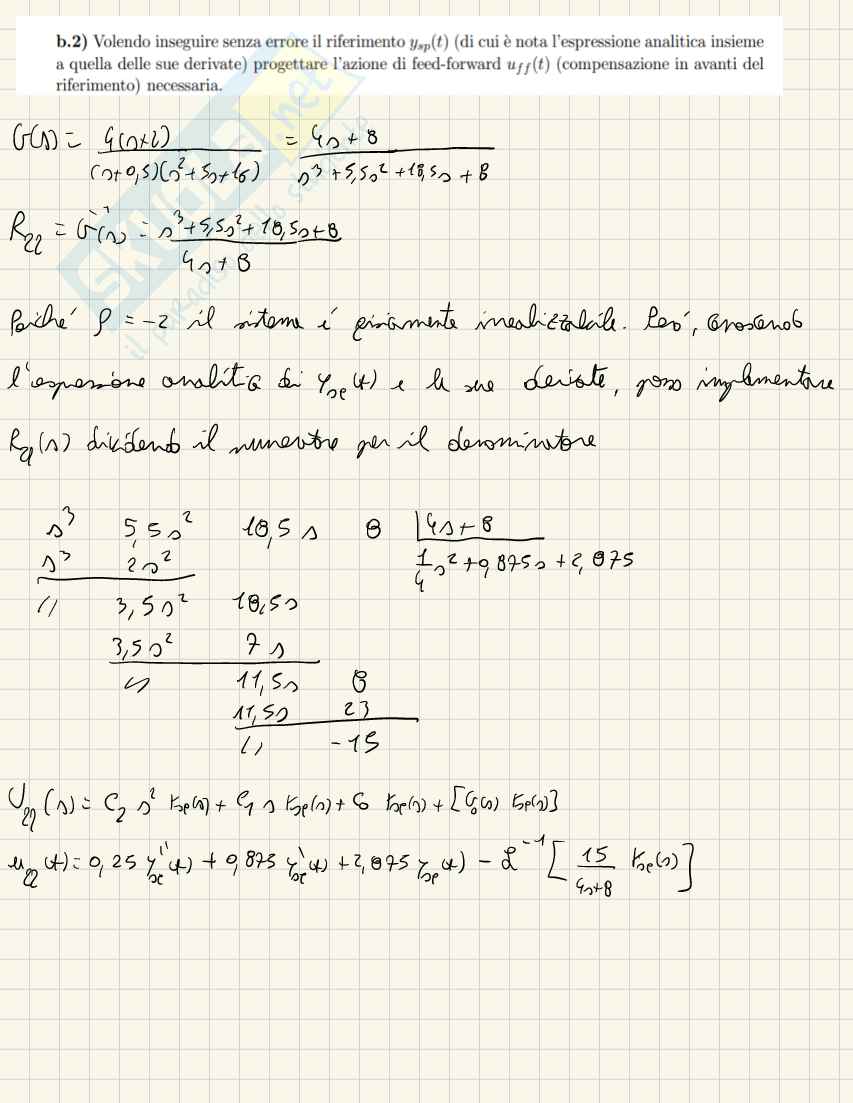 b.2) Volendo inseguire senza errore il riferimento y_sp(t) (di cui è nota l'espressione analitica insieme
a quella delle sue derivate) progettare l'azione di feed-forward u_ff(t) (compensazione in avanti del
riferimento) necessaria.
G(s) = 4(s+2) / (s+0,5)(s²+5s+16) = 4s+8 / s³+5,5s²+18,5s+8
R_ff = G⁻¹(s) = s³+5,5s²+18,5s+8 / 4s+8
Poiché ρ = -2 il sistema è fisicamente irrealizzabile. Però, conoscendo
l'espressione analitica di y_sp(t) e le sue derivate, posso implementare
R_ff(s) dividendo il numeratore per il denominatore
s³ 5,5s² 18,5s 8 | 4s+8
s³ 2s² 1/4 s²+0,875s+2,875
// 3,5s² 18,5s
3,5s² 7s
// 11,5s 8
11,5s 23
// -15
U_ff(s) = C₂ s² Y_sp(s) + C₁ s Y_sp(s) + C₀ Y_sp(s) + [G₀(s) Y_sp(s)]
u_ff(t) = 0,25 y''_sp(t) + 0,875 y'_sp(t) + 2,875 y_sp(t) - L⁻¹[15 / 4s+8 Y_sp(s)]
SKUOLA.net
il paradiso dello studente